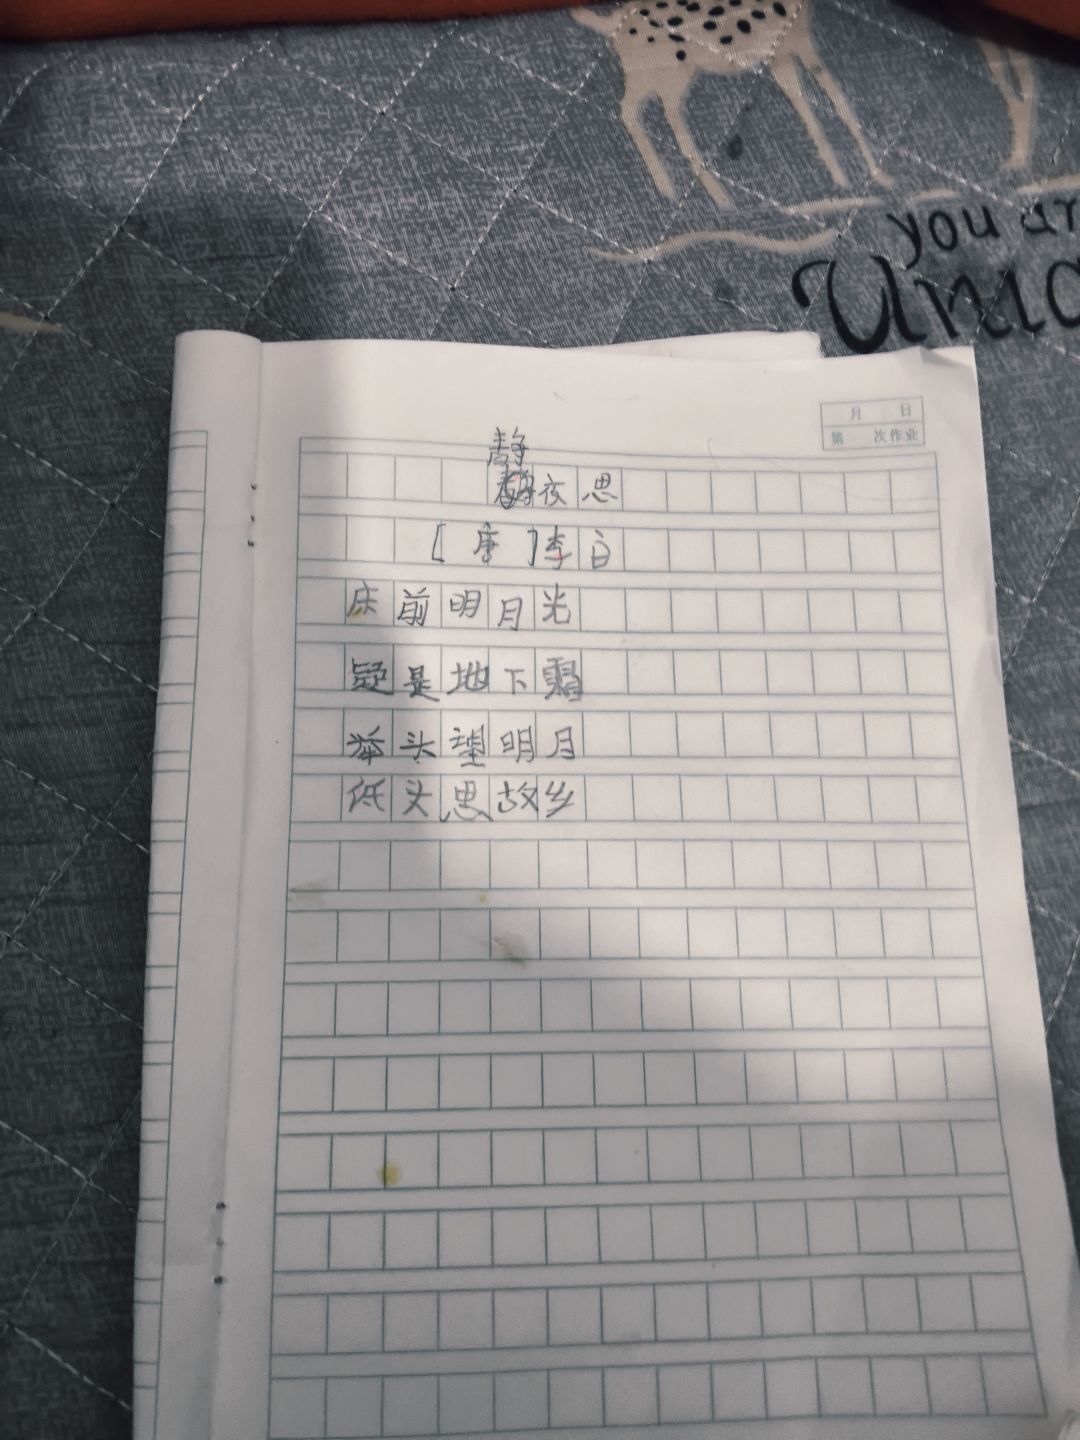 you ar
月 日
第 次作业
静
夜思
[唐]李白
床前明月光
疑是地下霜
举头望明月
低头思故乡